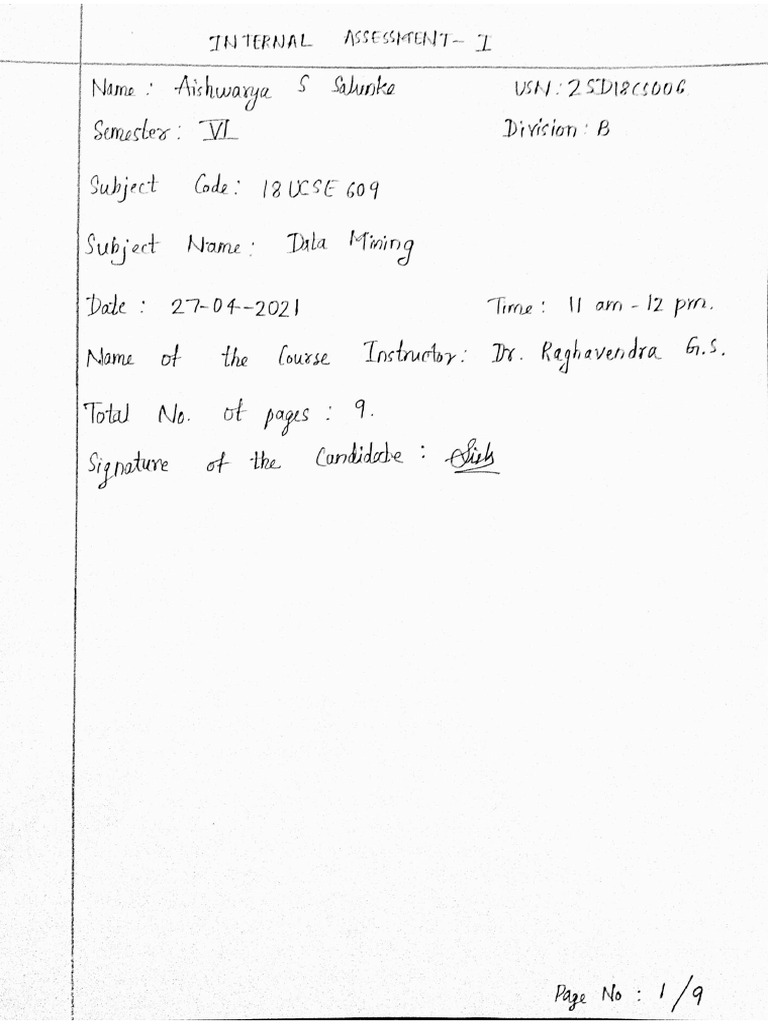 INTERNAL ASSESSMENT - I
Name : Aishwarya S Salunke USN : 2SD18CS006
Semester : VI Division : B
Subject Code : 18UCSE609
Subject Name : Data Mining
Date : 27-04-2021 Time : 11 am - 12 pm.
Name of the Course Instructor : Dr. Raghavendra G.S.
Total No. of pages : 9.
Signature of the Candidate :
Page No : 1/9